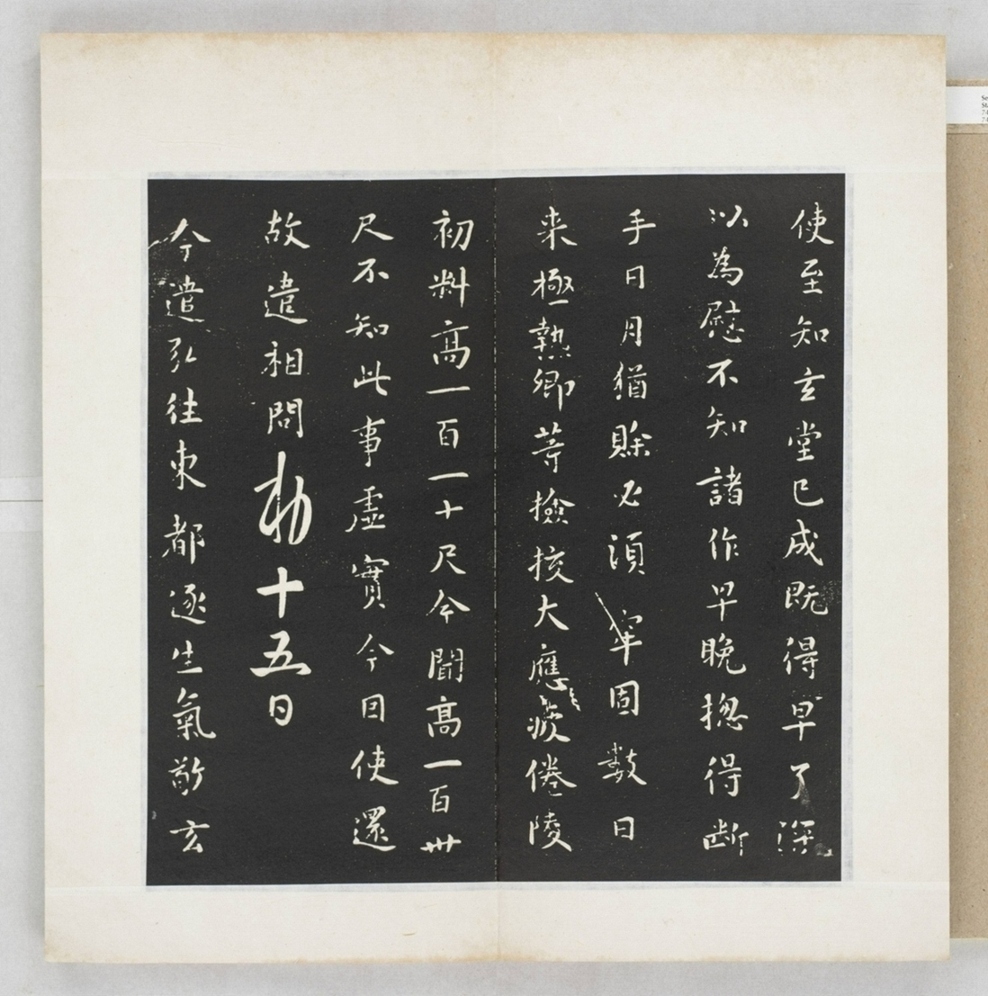 使至知玄堂已成既得早了深
以為慰不知諸作早晚揔得断
手日月猶賒必須牢固數日
来極熱卿等撿挍大應疲倦陵
初料高一百一十尺今聞高一百卌
尺不知此事虛實今因使還
故遣相問敕十五日
今遣弘往東都逐生氣敬玄